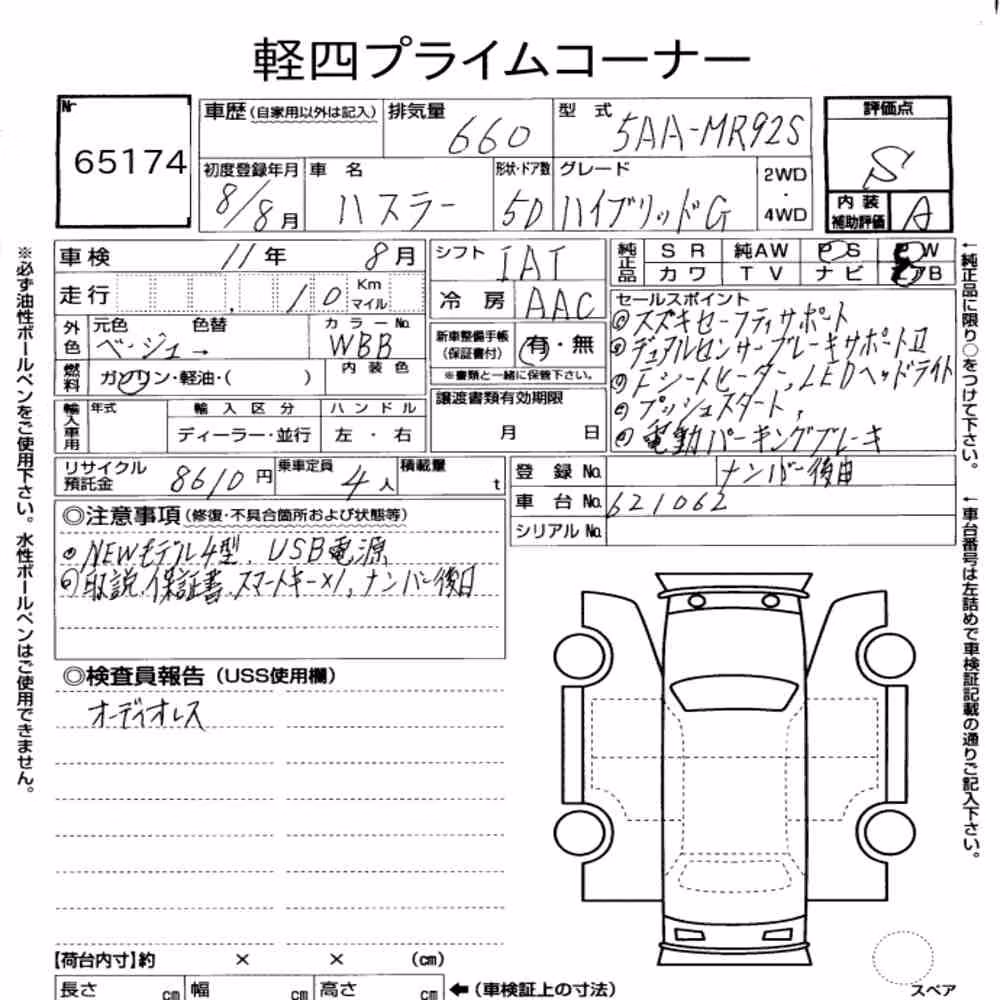 軽四プライムコーナー
Nr 65174
車歴(自家用以外は記入) 排気量 660 型式 5AA-MR92S
評価点 S
初度登録年月 8/8月 車名 ハスラー 形状・ドア数 5D グレード ハイブリッドG 2WD・4WD
内装補助評価 A
車検 11年 8月 シフト IAT 純正品 SR 純AW PS PW
走行 10 Km マイル 冷房 AAC カワ TV ナビ エアB
外色 元色 ベージュ 色替 → カラーNo. WBB
新車整備手帳(保証書付) 有・無
※書類と一緒に保管下さい。
燃料 ガソリン・軽油・( ) 内装色
セールスポイント
◎スズキセーフティサポート
◎デュアルセンサーブレーキサポートⅡ
◎Fシートヒーター,LEDヘッドライト
◎プッシュスタート,
◎電動パーキングブレーキ
輸入車用 年式 輸入区分 ハンドル
ディーラー・並行 左・右
譲渡書類有効期限
月 日
リサイクル預託金 8610円 乗車定員 4人 積載量 t
登録No. ナンバー後日
車台No. 621062
シリアルNo.
◎注意事項(修復・不具合箇所および状態等)
◎NEWモデル4型、USB電源
◎取説、保証書、スマートキー×1,ナンバー後日
◎検査員報告(USS使用欄)
オーディオレス
【荷台内寸】約 × × (cm)
長さ cm 幅 cm 高さ cm ←(車検証上の寸法)
スペア
※必ず油性ボールペンをご使用下さい。水性ボールペンはご使用できません。
←純正品に限り○をつけて下さい。
←車台番号は左詰めで車検証記載の通りご記入下さい。